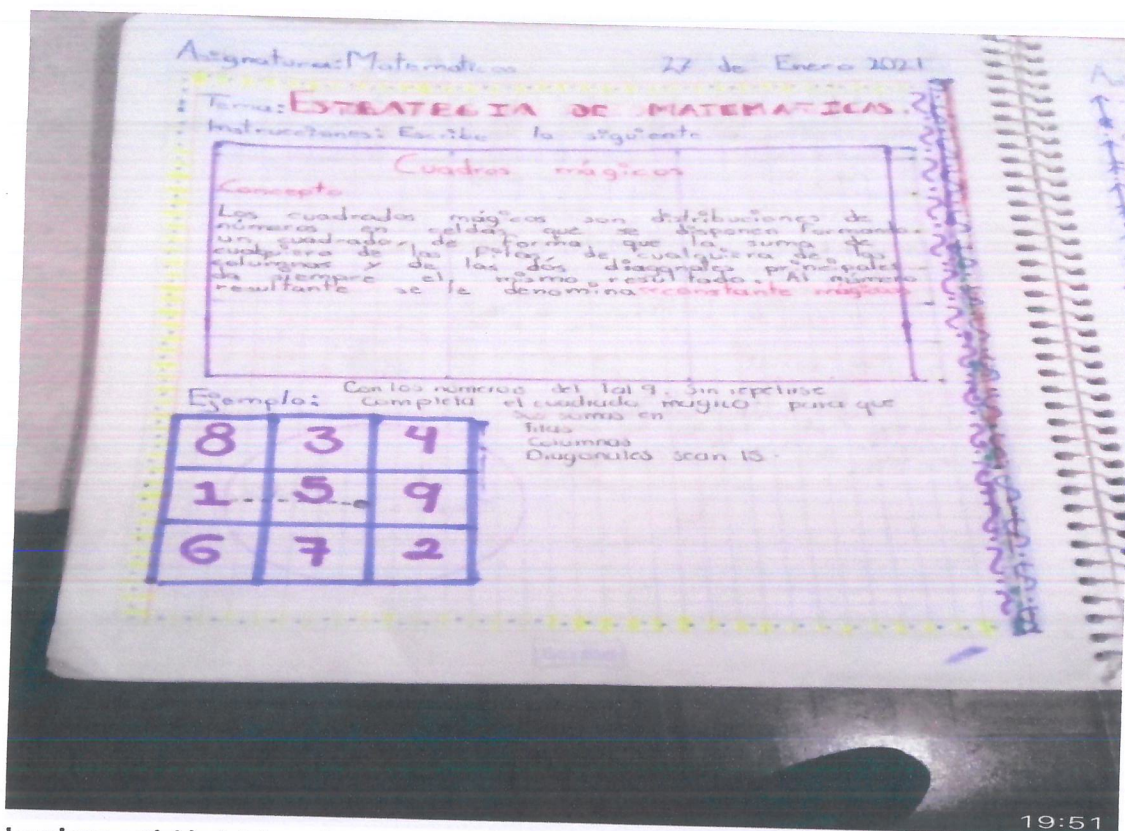 Asignatura: Matematicas 27 de Enero 2021
Tema: ESTRATEGIA DE MATEMATICAS.
Instrucciones: Escribe lo siguiente
Cuadros mágicos
Concepto
Los cuadrados mágicos son distribuciones de
números en celdas que se disponen formando
un cuadrado, de forma que la suma de
cualquiera de las filas, de cualquiera de las
columnas y de las dos diagonales principales
da siempre el mismo resultado. Al número
resultante se le denomina constante mágica
Ejemplo: Con los números del 1 al 9, sin repetirse
completa el cuadrado mágico para que
sus sumas en
filas
Columnas
Diagonales sean 15.
8 3 4
1 5 9
6 7 2
19:51